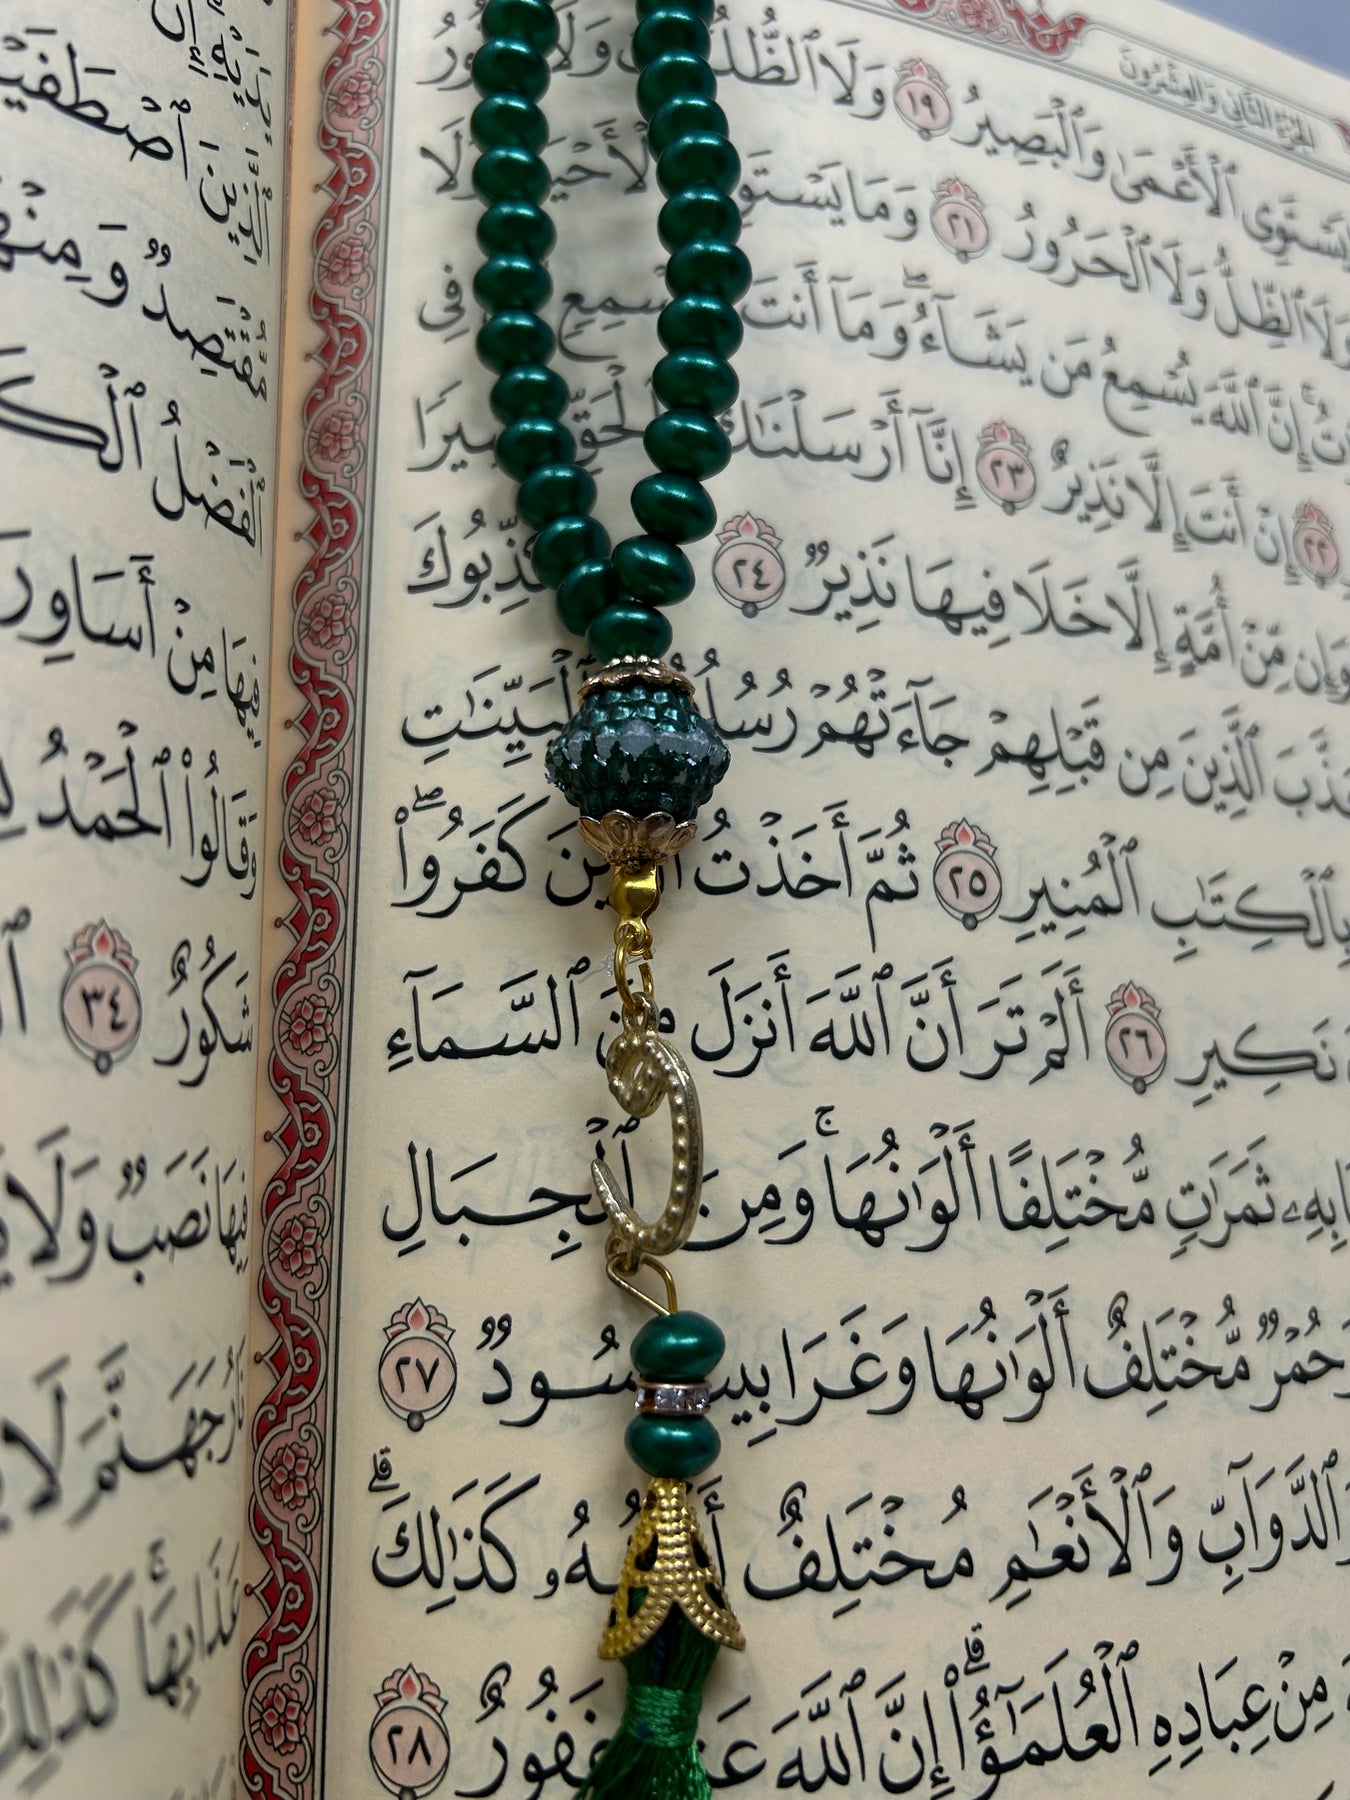 الجُزْءُ الثَّانِي وَالعِشْرُونَ
يَسْتَوِى ٱلْأَعْمَىٰ وَٱلْبَصِيرُ ١٩ وَلَا ٱلظُّلُ وَلَا
وَلَا ٱلظِّلُّ وَلَا ٱلْحَرُورُ ٢١ وَمَا يَسْتَوِ وَلَا
إِنَّ ٱللَّهَ يُسْمِعُ مَن يَشَآءُ ۖ وَمَآ أَنتَ فِى
٢٢ إِنْ أَنتَ إِلَّا نَذِيرٌ ٢٣ إِنَّآ أَرْسَلْنَٰكَ
وَإِن مِّنْ أُمَّةٍ إِلَّا خَلَا فِيهَا نَذِيرٌ ٢٤
كَذَّبَ ٱلَّذِينَ مِن قَبْلِهِمْ جَآءَتْهُمْ رُسُلُ
بِٱلْكِتَٰبِ ٱلْمُنِيرِ ٢٥ ثُمَّ أَخَذْتُ كَفَرُوا۟ ۖ
نَكِيرِ ٢٦ أَلَمْ تَرَ أَنَّ ٱللَّهَ أَنزَلَ ٱلسَّمَآءِ
بِهِۦ ثَمَرَٰتٍ مُّخْتَلِفًا أَلْوَٰنُهَا ۚ وَمِنَ ٱلْجِبَالِ
حُمْرٌ مُّخْتَلِفٌ أَلْوَٰنُهَا وَغَرَابِيبُ سُودٌ ٢٧
وَٱلدَّوَآبِّ وَٱلْأَنْعَٰمِ مُخْتَلِفٌ كَذَٰلِكَ ۗ
مِنْ عِبَادِهِ ٱلْعُلَمَٰٓؤُا۟ ۗ إِنَّ ٱللَّهَ غَفُورٌ ٢٨
ٱلَّذِينَ ٱصْطَفَيْ
مُّقْتَصِدٌ وَمِنْهُ
ٱلْفَضْلُ ٱلْكَ
فِيهَا مِنْ أَسَاوِرَ
وَقَالُوا۟ ٱلْحَمْدُ لِ
شَكُورٌ ٣٤
فِيهَا نَصَبٌ وَلَا
نَارُ جَهَنَّمَ لَا
عَذَابِهَا ۚ كَذَٰلِكَ